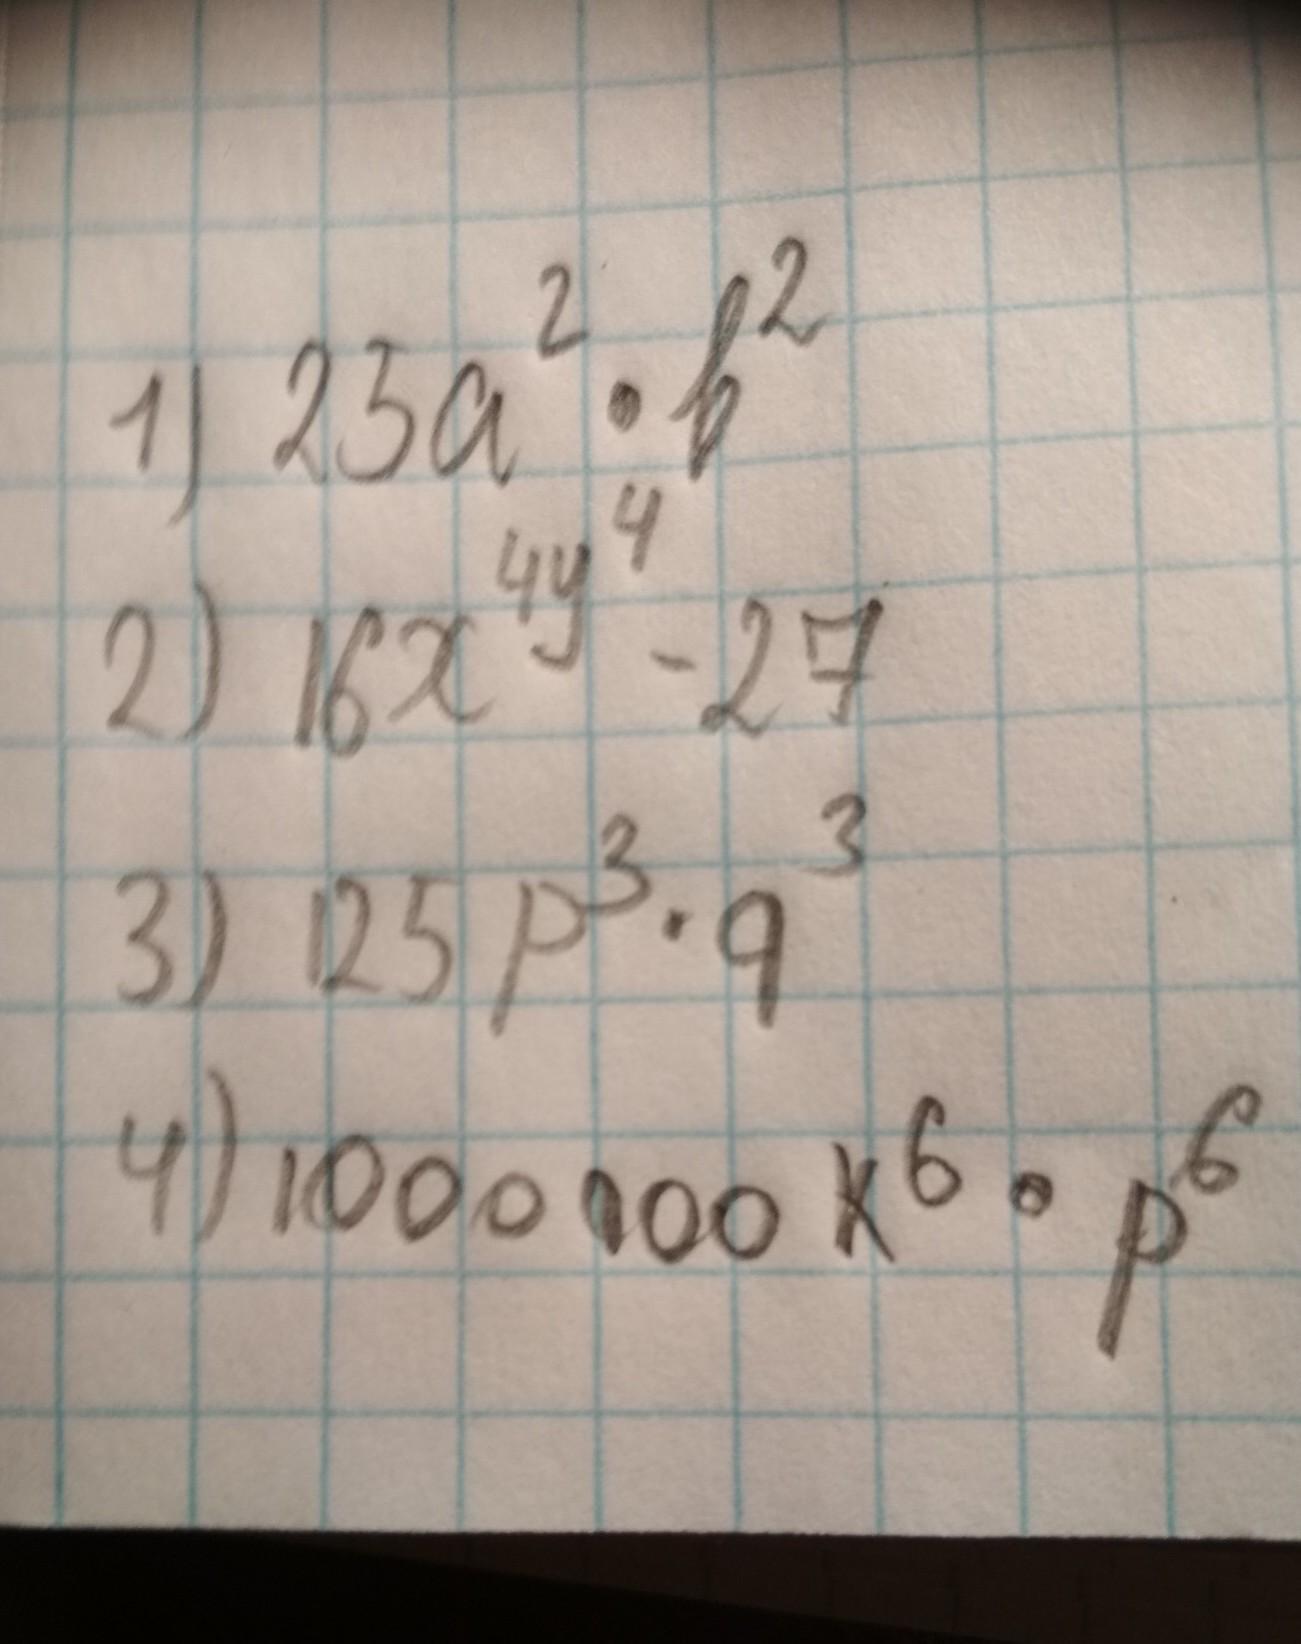 1) 23a² • b²
2) 16x⁴ʸ⁴ - 27
3) 125p³ · q³
4) 1000000k⁶ • p⁶